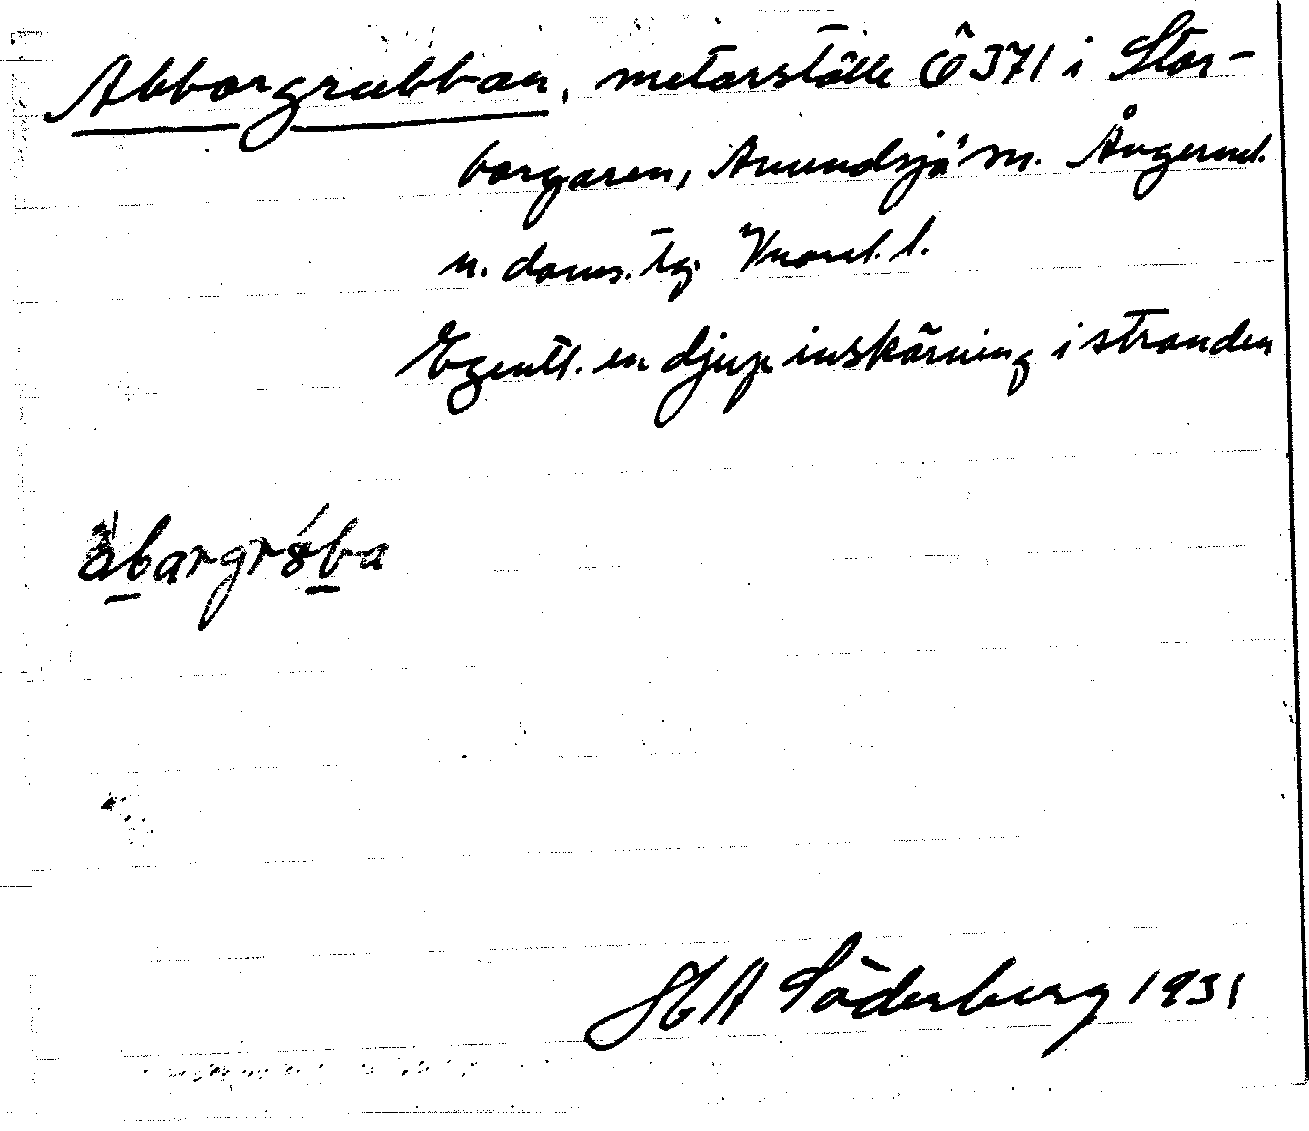 Abborgrubban, metarställe Ö 371 i Stor-
borgaren, Anundsjö sn. Ångerml.
n. doms. tg. Vnorrl. l.
Egentl. en djup inskärning i stranden
åbargrøba
HA Söderberg 1931